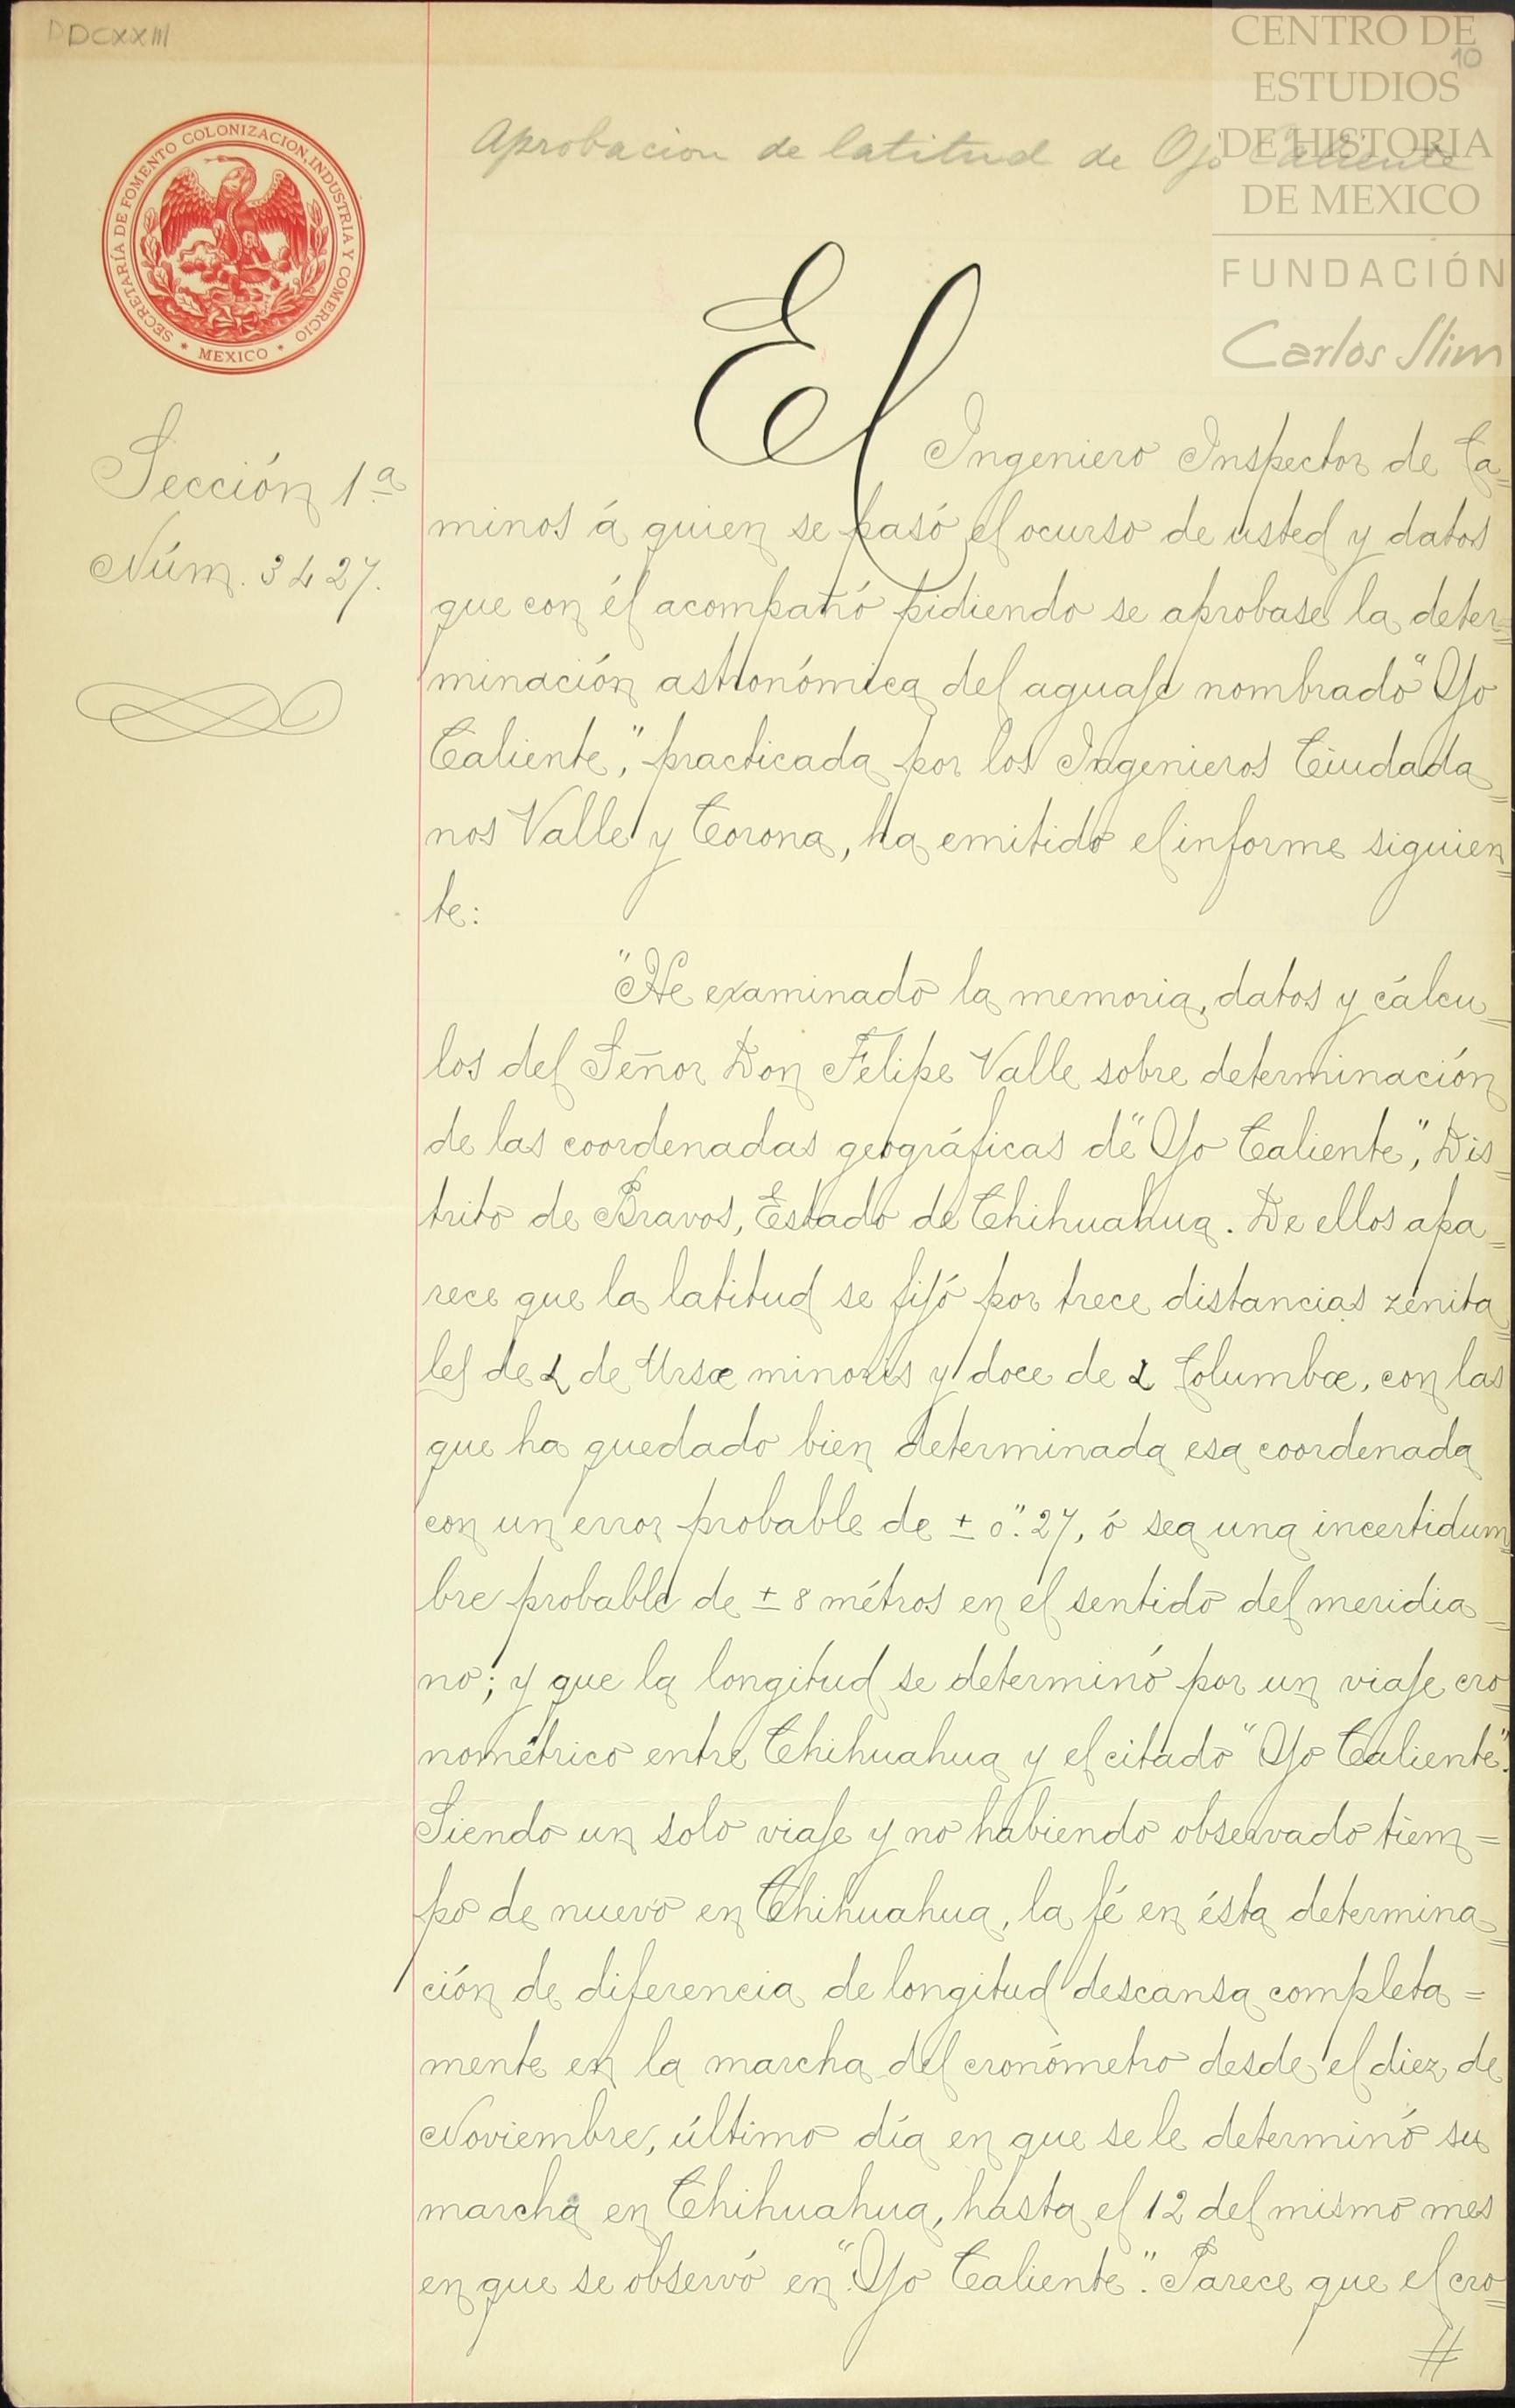 DDCXXIII
10
CENTRO DE
ESTUDIOS
DE HISTORIA
DE MEXICO
FUNDACIÓN
Carlos Slim
Aprobacion de latitud de Ojo Caliente
SECRETARÍA DE FOMENTO COLONIZACION, INDUSTRIA Y COMERCIO
* MEXICO *
Sección 1ª
Núm. 3427.
El Ingeniero Inspector de Ca=
minos á quien se pasó el ocurso de usted y datos
que con él acompañó pidiendo se aprobase la deter=
minación astronómica del aguaje nombrado "Ojo
Caliente," practicada por los Ingenieros Ciudada=
nos Valle y Corona, ha emitido el informe siguien=
te:
"He examinado la memoria, datos y cálcu=
los del Señor Don Felipe Valle sobre determinación
de las coordenadas geográficas de "Ojo Caliente", Dis=
trito de Bravos, Estado de Chihuahua. De ellos apa=
rece que la latitud se fijó por trece distancias zenita=
les de α de Ursæ minoris y doce de α Columbæ, con las
que ha quedado bien determinada esa coordenada
con un error probable de ± 0".27, ó sea una incertidum=
bre probable de ± 8 métros en el sentido del meridia=
no; y que la longitud se determinó por un viaje cro=
nométrico entre Chihuahua y el citado "Ojo Caliente".
Siendo un solo viaje y no habiendo observado tiem=
po de nuevo en Chihuahua, la fé en ésta determina=
ción de diferencia de longitud descansa completa=
mente en la marcha del cronómetro desde el diez de
Noviembre, último día en que se le determinó su
marcha en Chihuahua, hasta el 12 del mismo mes
en que se observó en "Ojo Caliente". Parece que el cro=
#